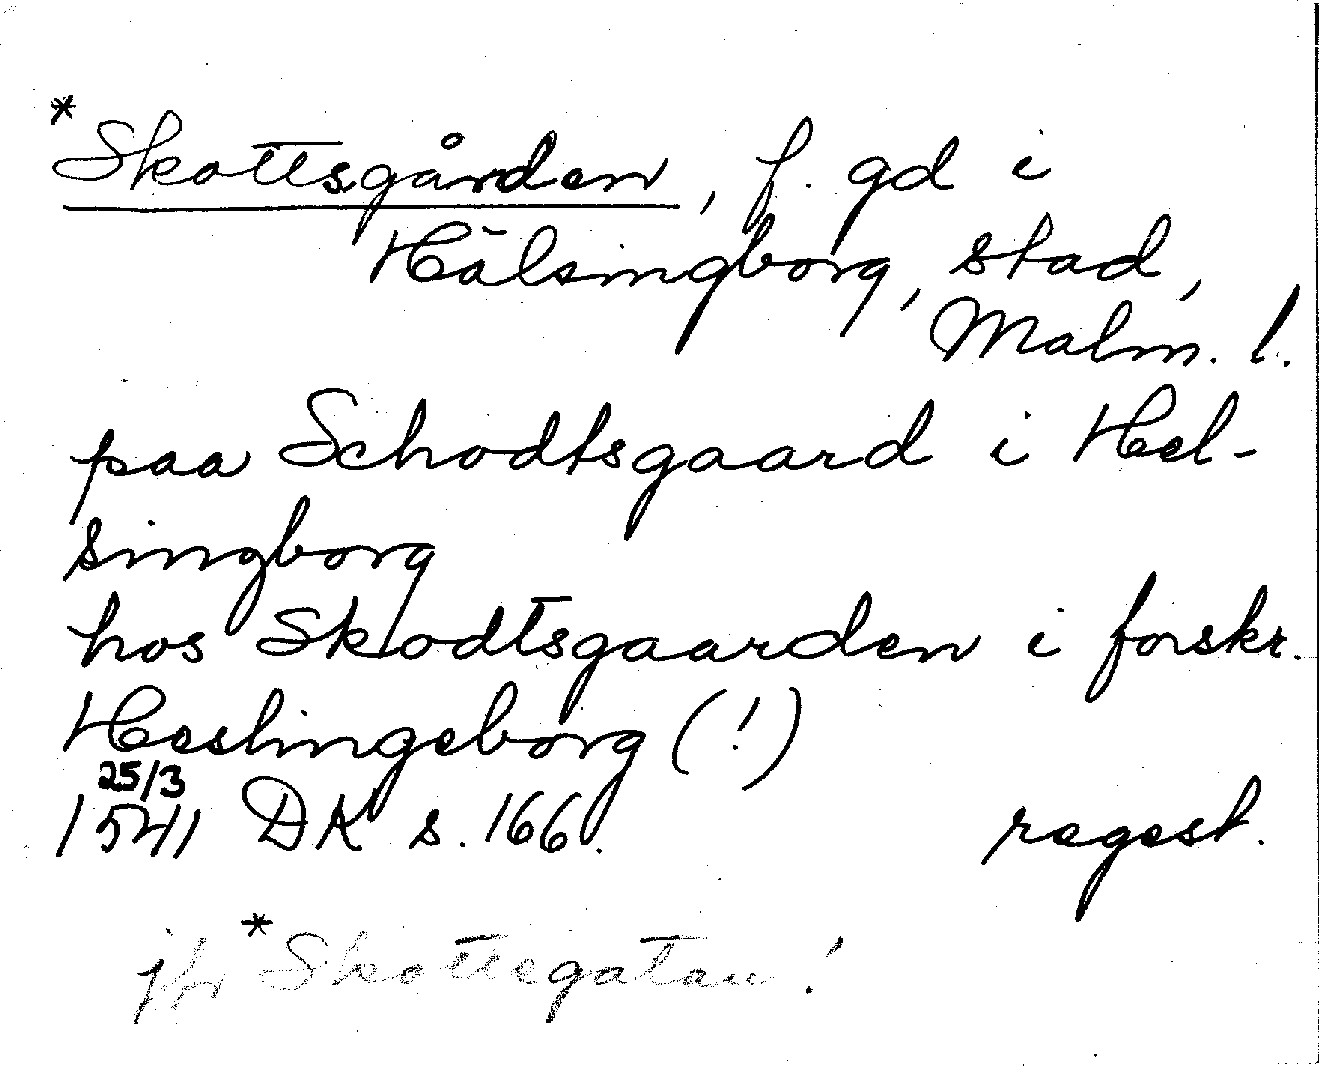 *Skottsgården, f. gd i
Hälsingborg, stad,
Malm. l.
paa Schodtsgaard i Hel-
singborg
hos Skodtsgaarden i forskr.
Heslingeborg (!)
25/3
1541 DK s. 166. regest.
jfr *Skottegatan!